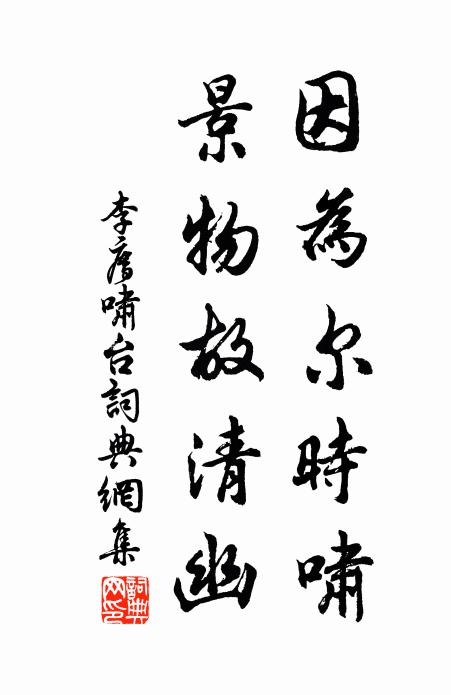 因為尔時嘯
景物故清幽
李廌嘯台詞典網集
詞典
网印